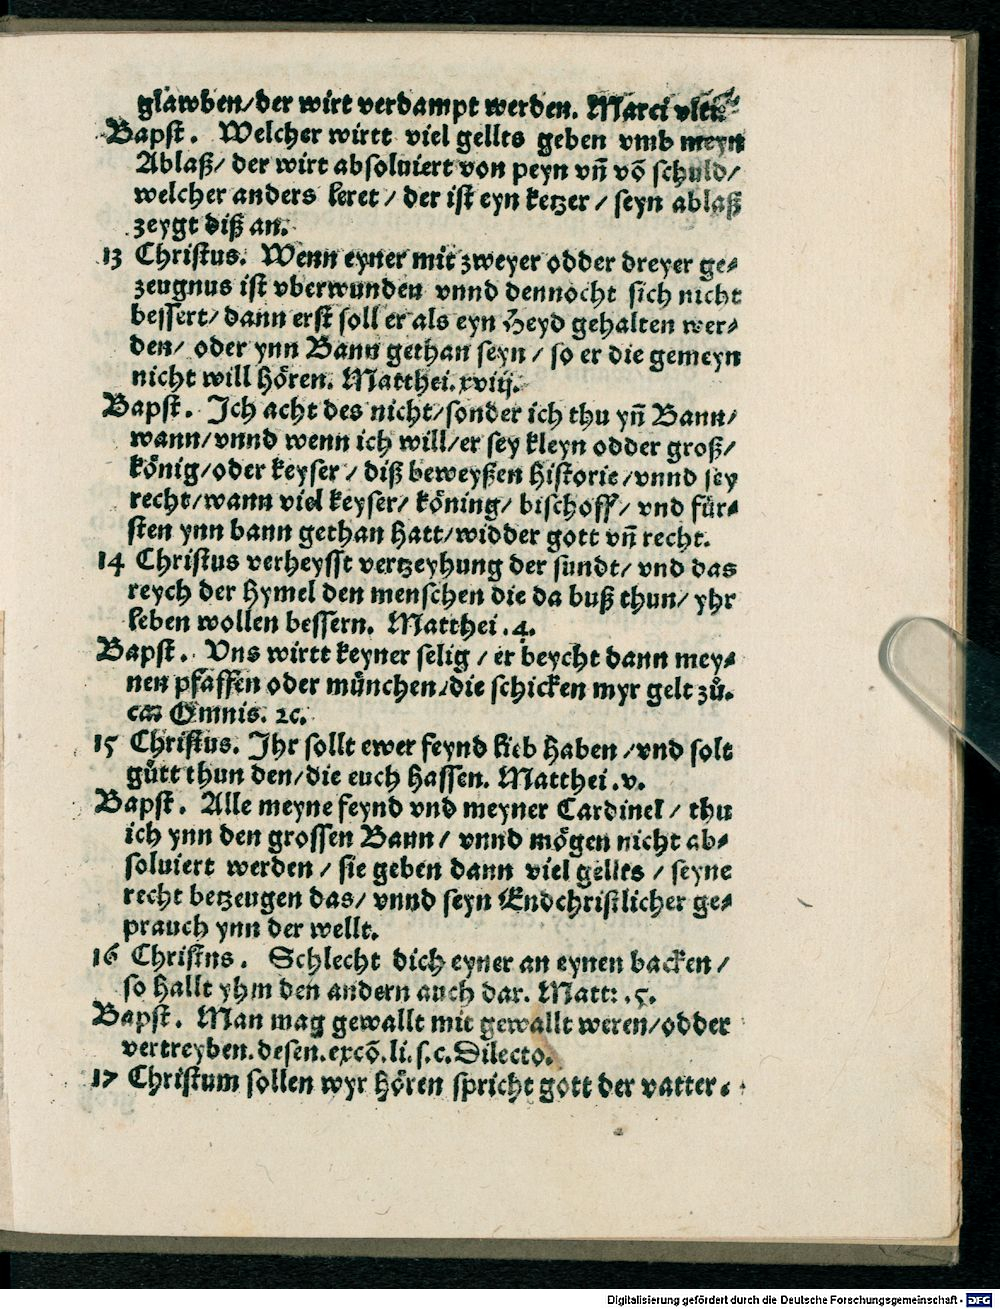 glawben/der wirt verdampt werden. Marci vlti.
Bapst. Welcher wirtt viel gellts geben vmb meyn
Ablaß/ der wirt absoluiert von peyn vñ võ schuld/
welcher anders leret / der ist eyn ketzer / seyn ablaß
zeygt diß an.
13 Christus. Wenn eyner mit zweyer odder dreyer ge⸗
zeugnus ist vberwunden vnnd dennocht sich nicht
bessert/ dann erst soll er als eyn Heyd gehalten wer⸗
den/ oder ynn Bann gethan seyn / so er die gemeyn
nicht will hören. Matthei.xviij.
Bapst. Ich acht des nicht/sonder ich thu yñ Bann/
wann/vnnd wenn ich will/er sey kleyn odder groß/
könig/oder keyser / diß beweyßen historie/vnnd sey
recht/wann viel keyser/ köning/ bischoff/ vnd für⸗
sten ynn bann gethan hatt/widder gott vñ recht.
14 Christus verheysst vertzeyhung der sundt/ vnd das
reych der hymel den menschen die da buß thun/ yhr
leben wollen bessern. Matthei .4.
Bapst. Vns wirtt keyner selig / er beycht dann mey⸗
nen pfaffen oder münchen/die schicken myr gelt zů.
ca Omnis. ⁊c.
15 Christus. Ihr sollt ewer feynd lieb haben /vnd solt
gůtt thun den/die euch hassen. Matthei .v.
Bapst. Alle meyne feynd vnd meyner Cardinel / thu
ich ynn den grossen Bann/ vnnd mögen nicht ab⸗
soluiert werden / sie geben dann viel gellts / seyne
recht betzeugen das/ vnnd seyn Endchristlicher ge⸗
prauch ynn der wellt.
16 Christns. Schlecht dich eyner an eynen backen /
so hallt yhm den andern auch dar. Matt: .5.
Bapst. Man mag gewallt mit gewallt weren/odder
vertreyben.desen.excõ.li.s.c.Dilecto.
17 Christum sollen wyr hören spricht gott der vatter.
Digitalisierung gefördert durch die Deutsche Forschungsgemeinschaft - DFG